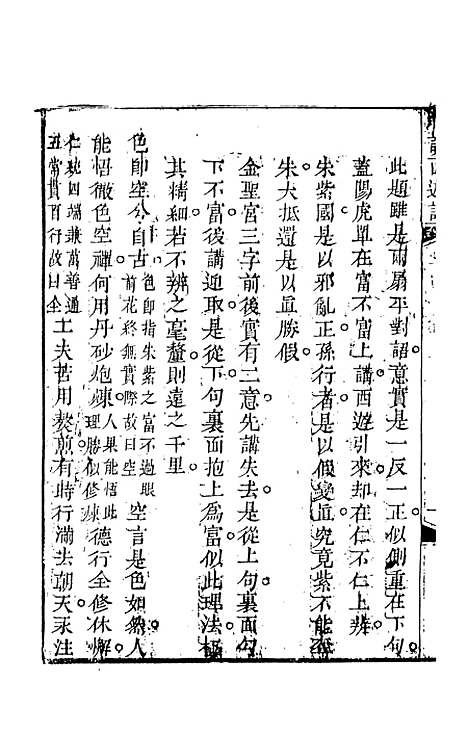 此題雖是兩扇平對語意實是一反一正似側重在下句
蓋陽虎單在富不富上講西遊引來却在仁不仁上辨
朱紫國是以邪亂正孫行者是以假變真究竟紫不能奪
朱大抵還是以真勝假
金聖宮三字前後實有二意先講失去是從上句裏面句
下不富後講通取是從下句裏面抱上為富似此理法極
其精細若不辨之毫釐則遠之千里
色即空兮自古色即指朱紫之富不過眼前花終無實際故曰空空言是色如然人
能悟徹色空禪何用丹砂炮煉人果能悟此理勝似修煉德行全修休懈
仁統四端兼萬善通五常貫百行故曰全工夫苦用熬煎有時行滿去朝天永注